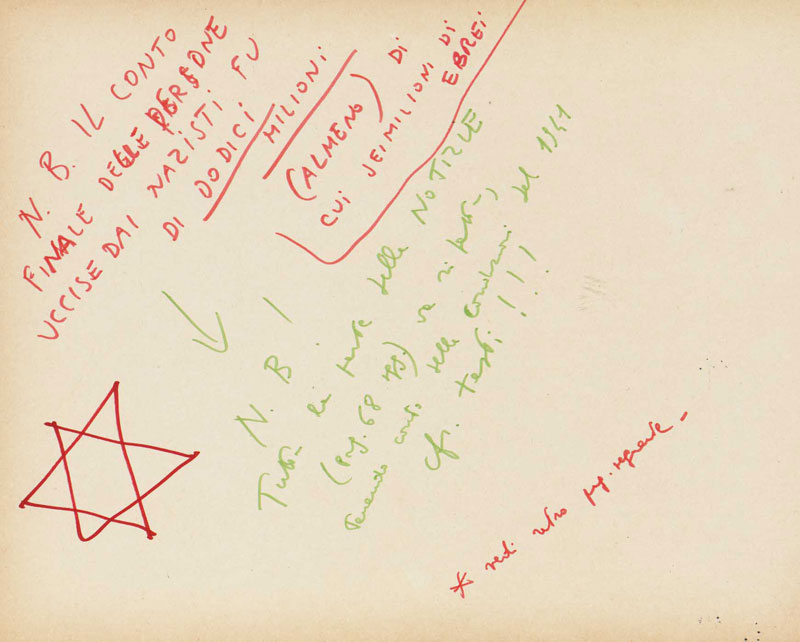 N. B. IL CONTO
FINALE PERSONE
UCCISE DAI NAZISTI FU
DI DODICI MILIONI
(ALMENO) DI
CUI SEIMILIONI DI
EBREI
N. B. !
Tutta la parte delle NOTIZIE
(pag. 68 sgg.) va
tenendo conto delle del 1941
cfr. testi!!!
* vedi retro pag. seguente -